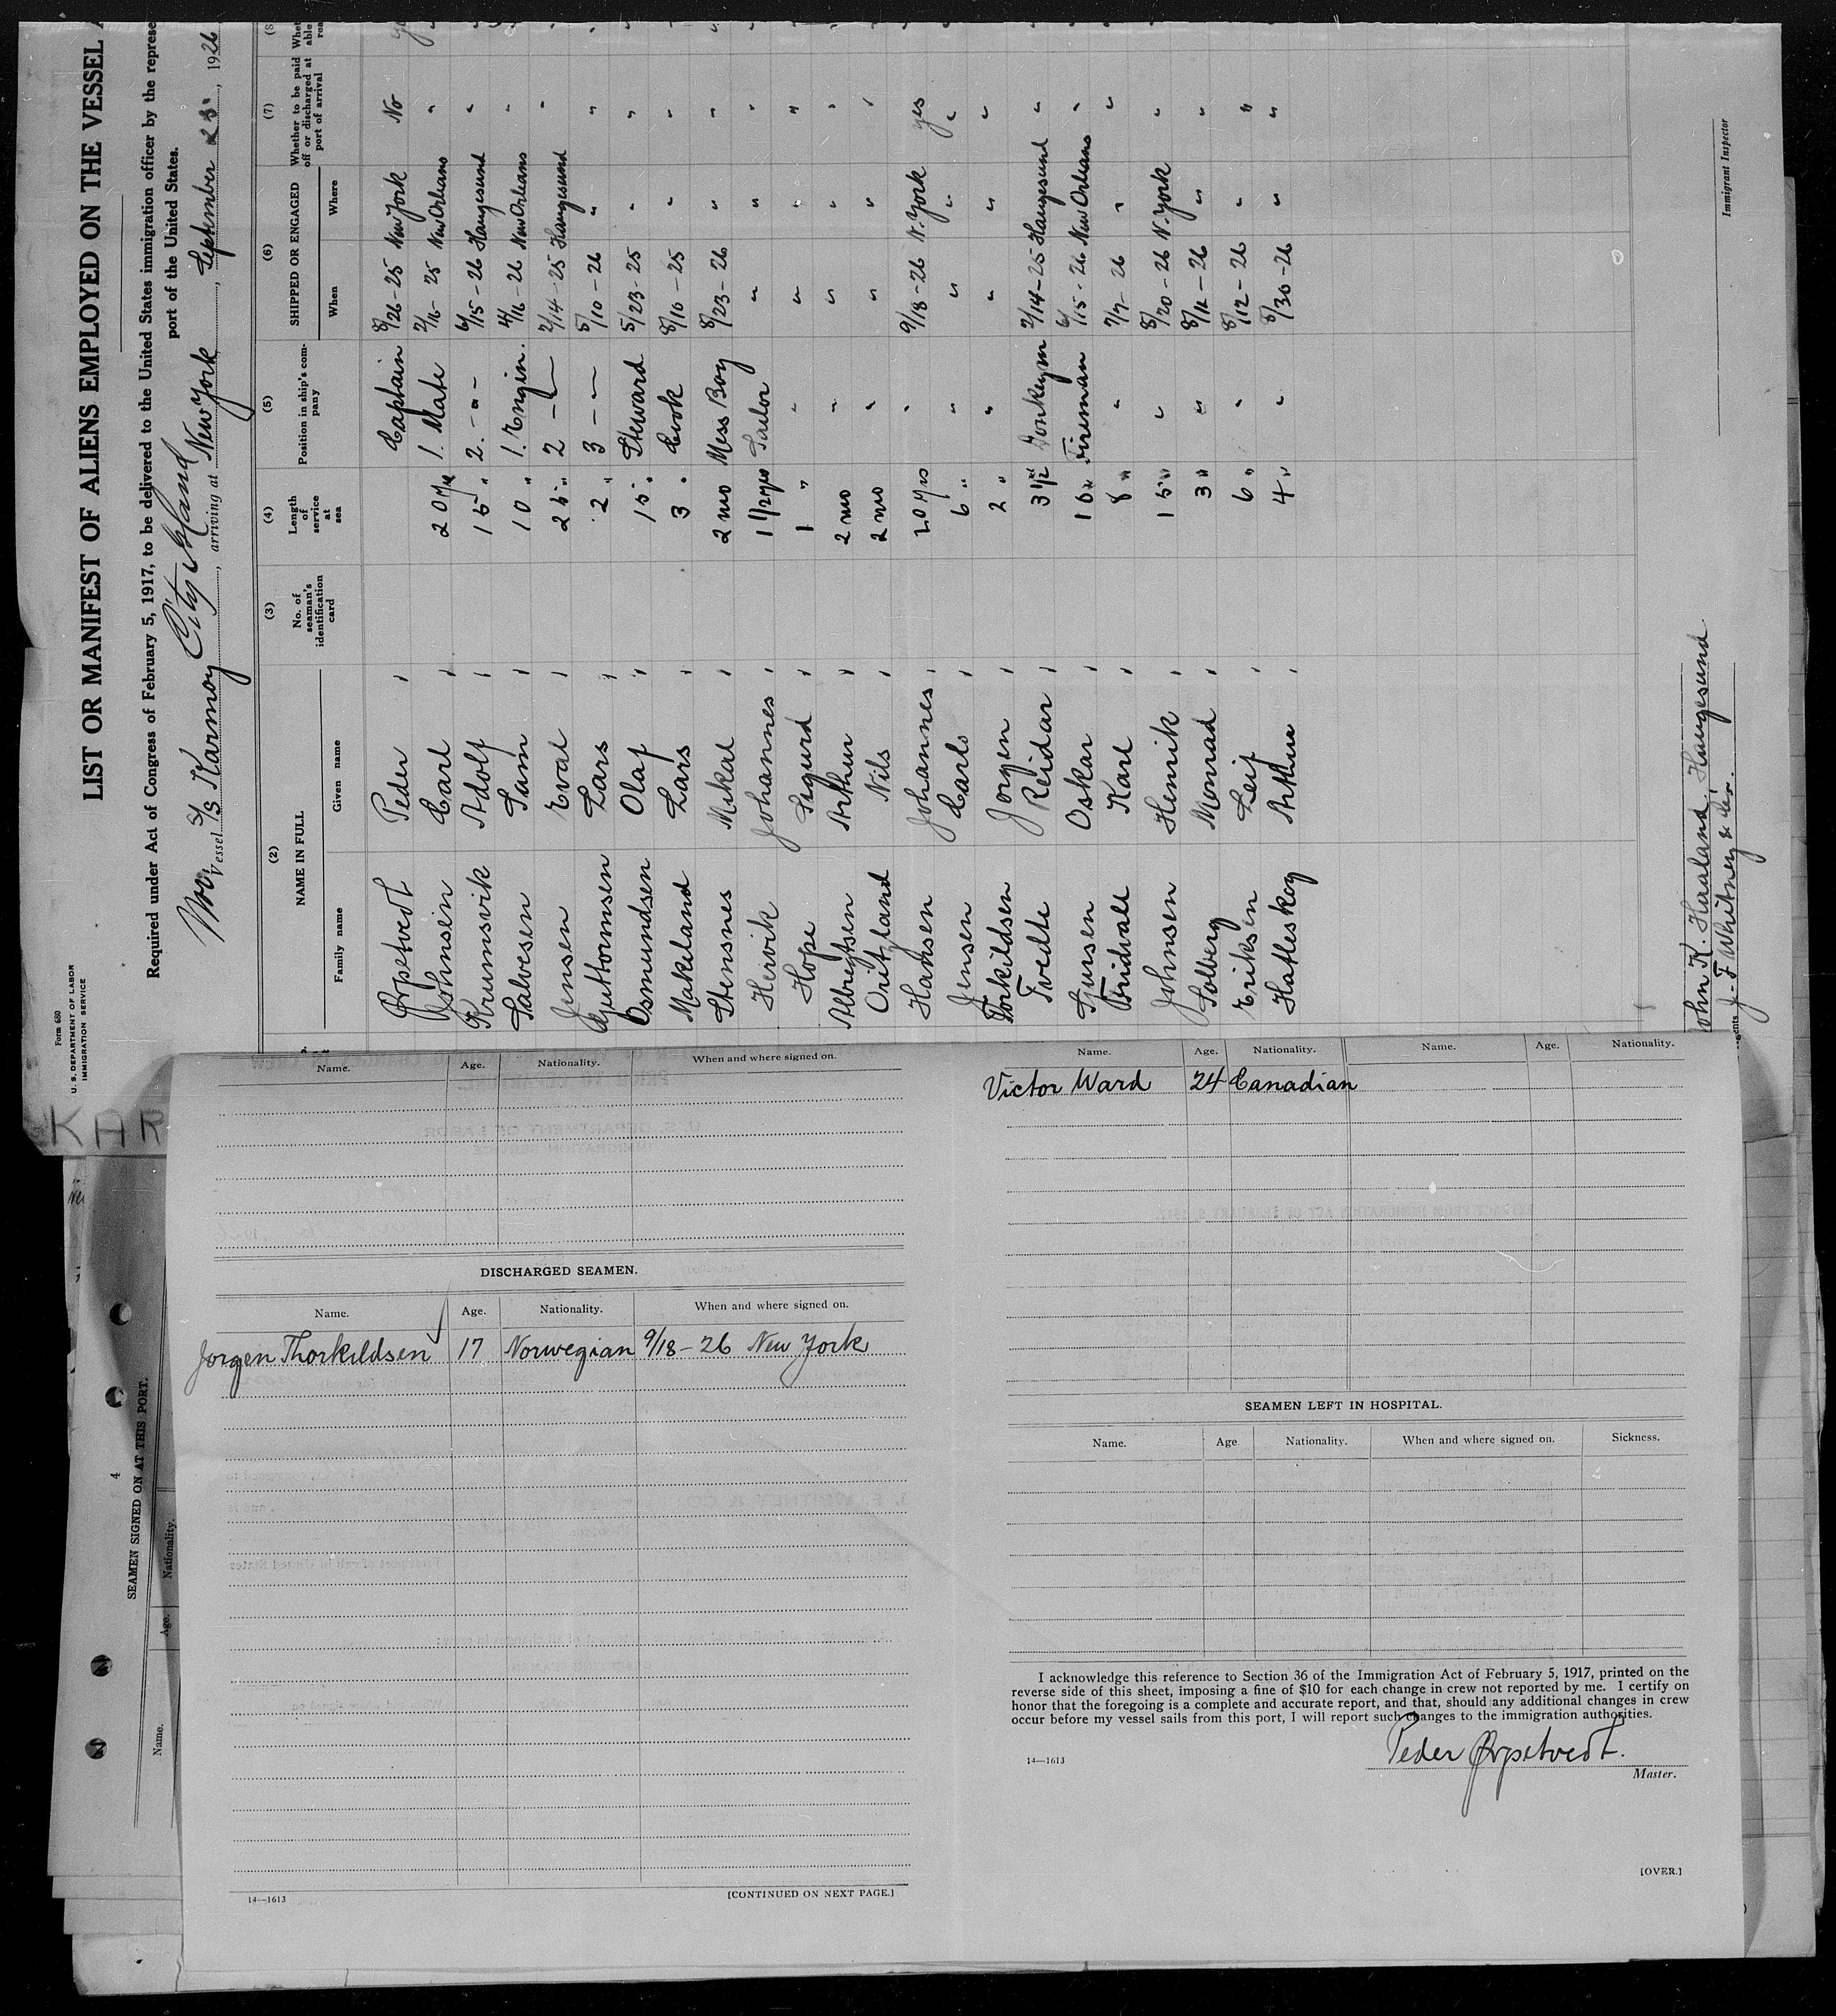 Form 680
U. S. DEPARTMENT OF LABOR
IMMIGRATION SERVICE
LIST OR MANIFEST OF ALIENS EMPLOYED ON THE VESSEL
Required under Act of Congress of February 5, 1917, to be delivered to the United States immigration officer by the represe
port of the United States.
Nor. Vessel S/S Karmoy, arriving at New York, September 23, 1926
(2) (3) (4) (5) (6) (7) (8
NAME IN FULL
Family name Given name
No. of seaman's identification card
Length of service at sea
Position in ship's company
SHIPPED OR ENGAGED
When Where
Whether to be paid off or discharged at port of arrival
Ørpetvedt Peder Captain 8/26-25 New York No
Johnsen Carl 20 yrs 1. Mate 2/16-25 New Orleans "
Krumsvik Adolf 15 " 2. - " - 6/15-26 Haugesund "
Salvesen 10 " 1. Engin. 4/16-26 New Orleans "
Jensen Eval 25 " 2 - 2/14-25 Haugesund "
Guttormsen Lars 2 " 3 - 5/10-26 " "
Osmundsen Olaf 15 " Steward 5/23-25 " "
Makeland Lars 3 " Cook 8/10-25 " "
Stensnes Mikal 2 mo Mess Boy 8/23-26 " "
Hervik Johannes 1 1/2 yrs Sailor " " "
Hope Sigurd 1 " " " " "
Albregtsen Arthur 2 mo " " " "
Oritzland Nils 2 mo " " " "
Hansen Johannes 20 yrs " 9/18-26 N. York yes
Jensen Carl 6 " " " " "
Torkildsen Jorgen 2 " " " " "
Tvedte Reidar 3 1/2 " Donkeym 2/14-25 Haugesund "
Sjursen Oskar 16 " Fireman 6/15-26 New Orleans "
Karl 8 " " 7/7-26 " "
Johnsen Henrik 15 " " 8/20-26 N. York "
Solberg Monrad 3 " " 8/11-26 " "
Eriksen Leif 6 " " 8/12-26 " "
Hatleskog Arthur 4 " " 8/30-26 " "
John K. Haaland, Haugesund
J. F. Whitney & Co.
Immigrant Inspector
KAR
4
SEAMEN SIGNED ON AT THIS PORT.
Name. Age. Nationality.
Name. Age. Nationality. When and where signed on.
DISCHARGED SEAMEN.
Name. Age. Nationality. When and where signed on.
Jorgen Thorkildsen 17 Norwegian 9/18-26 New York
14—1613 [CONTINUED ON NEXT PAGE.]
Name. Age. Nationality. Name. Age. Nationality.
Victor Ward 24 Canadian
SEAMEN LEFT IN HOSPITAL.
Name. Age Nationality. When and where signed on. Sickness.
I acknowledge this reference to Section 36 of the Immigration Act of February 5, 1917, printed on the
reverse side of this sheet, imposing a fine of $10 for each change in crew not reported by me. I certify on
honor that the foregoing is a complete and accurate report, and that, should any additional changes in crew
occur before my vessel sails from this port, I will report such changes to the immigration authorities.
Peder Ørpetvedt.
14—1613 Master.
[OVER.]